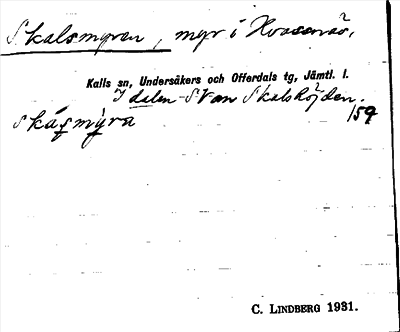 Skalsmyren, myr i Kvassnäs.
Kalls sn, Undersåkers och Offerdals tg, Jämtl. l.
I dalen SV om Skalshöjden.
159
C. LINDBERG 1931.